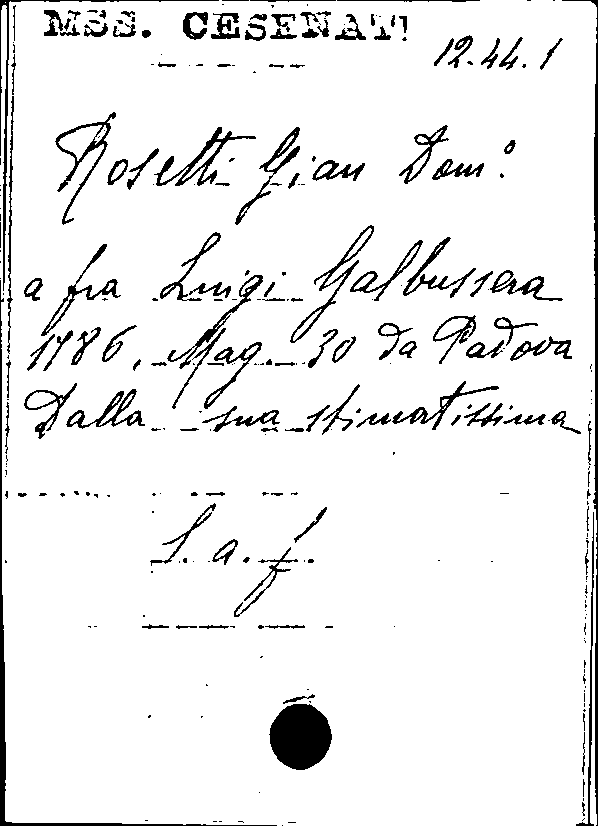 MSS. CESENATI
12.44.1
Rosetti Gian Dom.º
a fra Luigi Galbussera
1786, Mag. 30 da Padova
Dalla sua stimatissima
L. a. f.